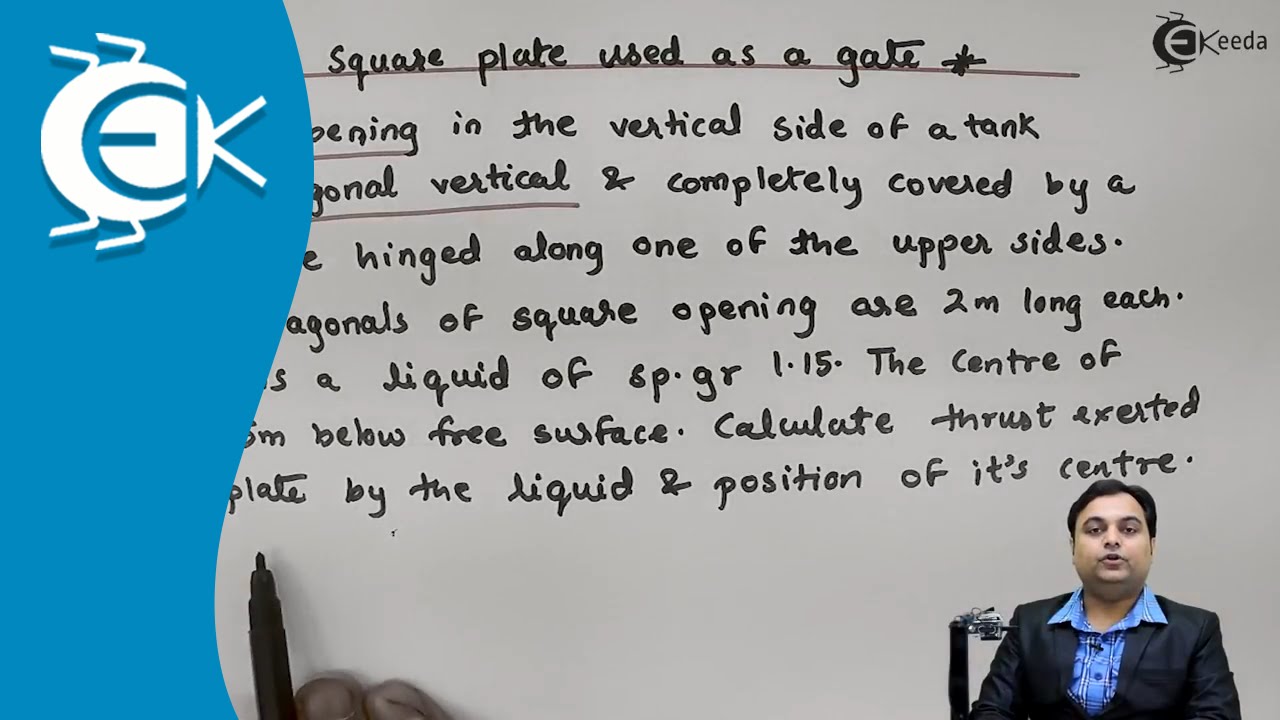 Keeda
square plate used as a gate *
pening in the vertical side of a tank
gonal vertical & completely covered by a
e hinged along one of the upper sides.
agonals of square opening are 2m long each.
s a liquid of sp.gr 1.15. The centre of
5m below free surface. Calculate thrust exerted
plate by the liquid & position of it's centre.